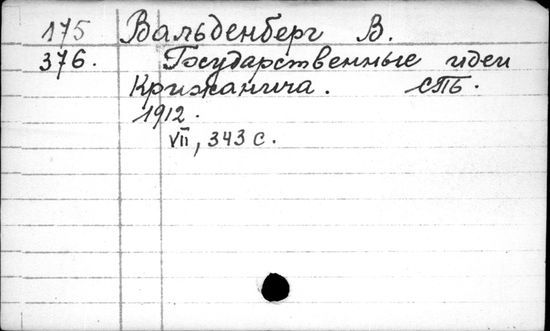 175 Вальденберг В.
376. Государственные идеи
Крижанича. СПБ.
1912.
VII, 343 с.